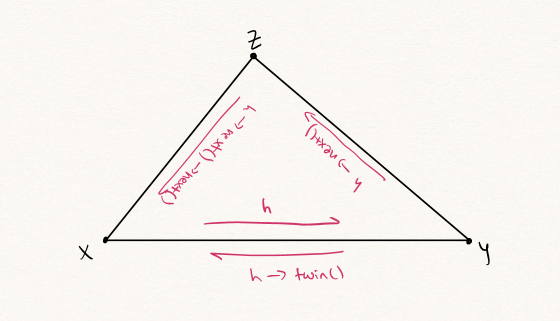 Z
h -> next() -> next()
h -> next()
h
X
y
h -> twin()